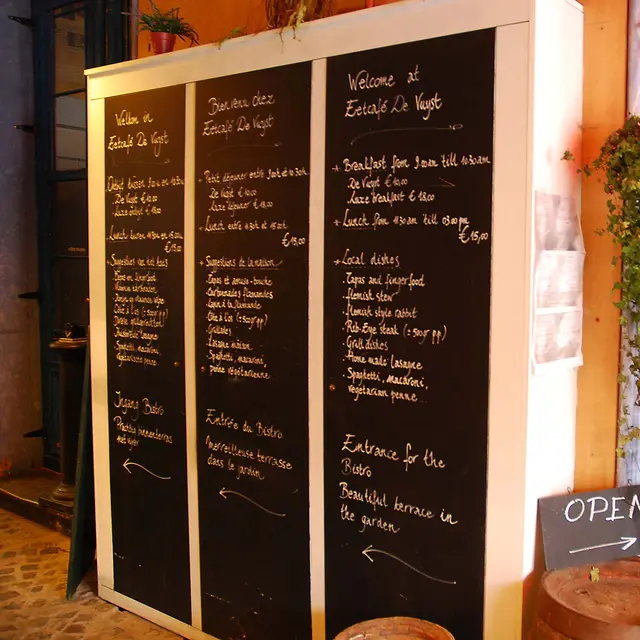 Welkom in
Eetcafé De Vuyst
De Vuyst €10.00
Luxe ontbijt € 18.00
€15.00
Spaghetti, macaroni
vegetarische penne
Ingang Bistro
Prachtig
Bienvenu chez
Eetcafé De Vuyst
Petit déjeuner entre
De Vuyst € 10.00
Luxe déjeuner € 18.00
Lunch entre 11.30h et 15
€15,00
Suggestions de la maison
Tapas et amuse-bouche
Carbonades flamandes
Lapin à la flamande
Côte à l'os (±500gr pp)
Grillades
Lasagne maison
Spaghetti, macaroni,
penne vegetarienne
Entrée du Bistro
Merveilleuse terrasse
dans le jardin
Welcome at
Eetcafé De Vuyst
Breakfast from 9.00am till 10.30am
De Vuyst € 10,00
Luxe breakfast € 18,00
Lunch from 11.30am till 03.00pm
€15,00
Local dishes
Tapas and fingerfood
Flemish stew
Flemish style rabbit
Rib-Eye steak (±500gr pp)
Grill dishes
Home made lasagne
Spaghetti, Macaroni,
vegetarian penne
Entrance for the
Bistro
Beautiful terrace in
the garden
OPEN